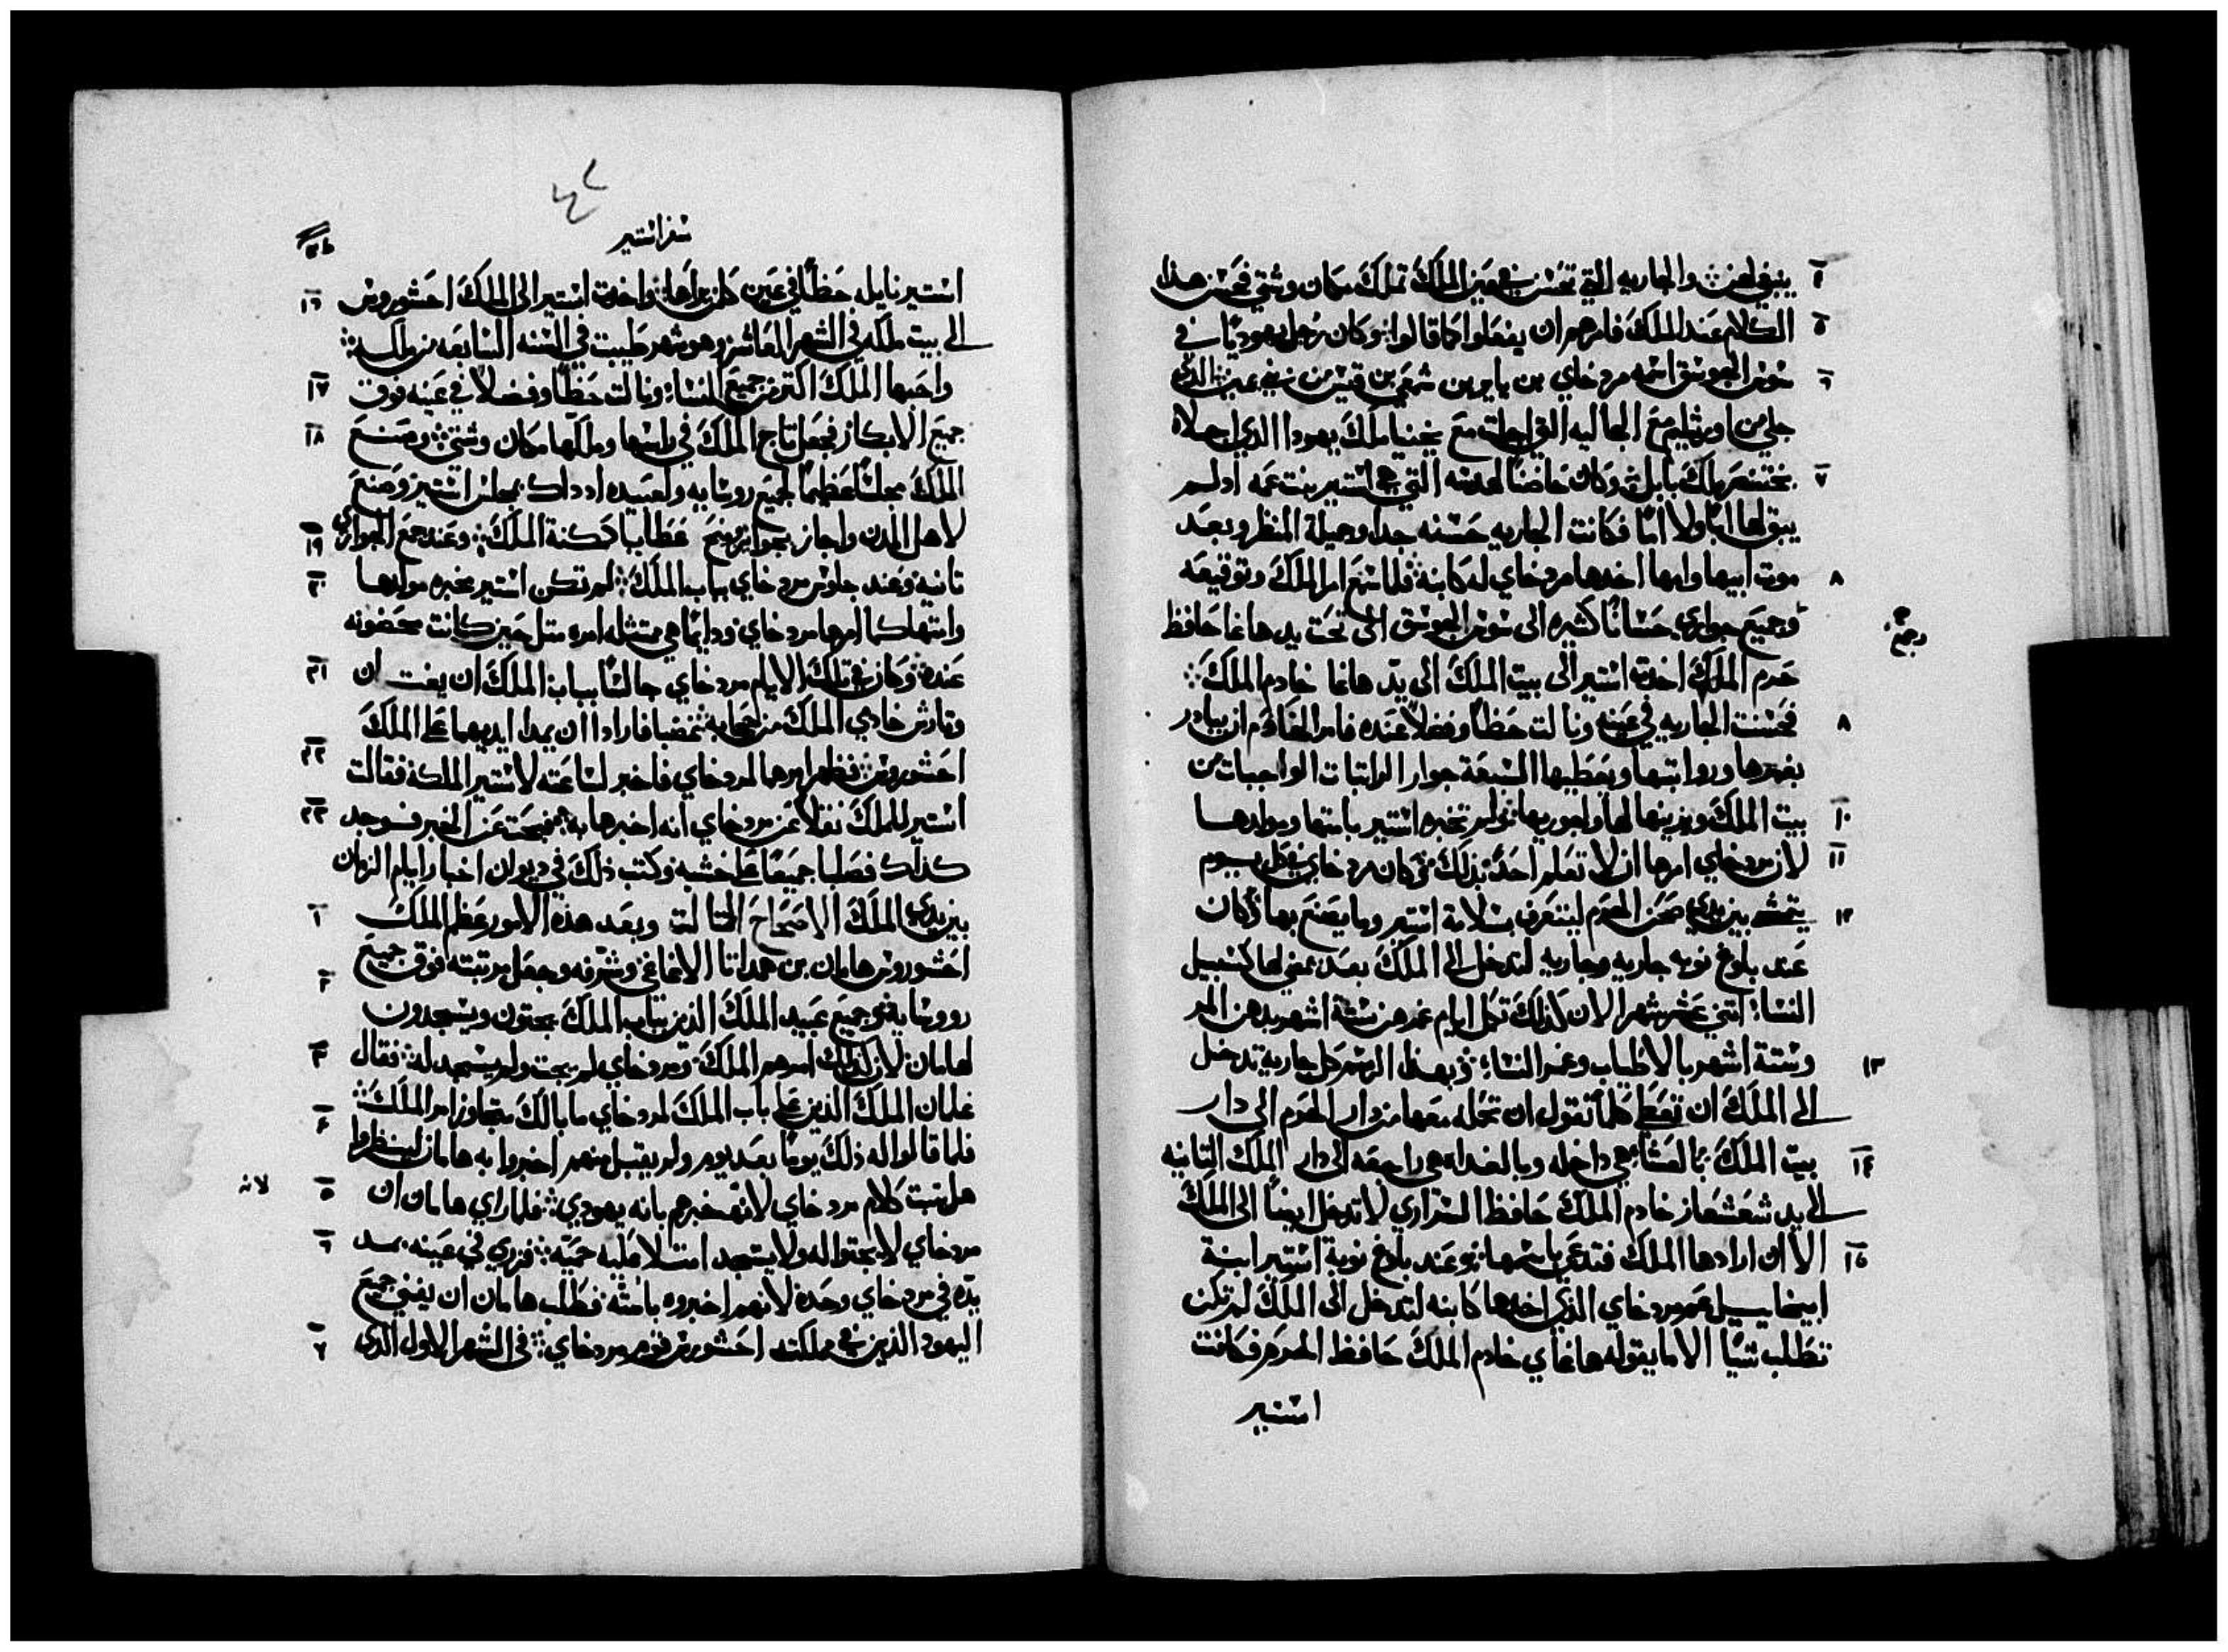 ينبغي لهن والجاريه التي تحسن في عين الملك تملك مكان وشتي فحسن هذا
الكلام عند الملك فامرهم ان يفعلوا كما قالوا وكان رجل يهوديا في
سوس الجوسق اسمه مردخاي بن ياير بن شمعي بن قيس من بني يمين الذي
جلي من اورشليم مع الجاليه التي اجليت مع يخنيا ملك يهودا الذي اجلاه
بختنصر ملك بابل وكان حاضنا لهدسه التي هي استير بنت عمه اد لم
يبق لها ابا ولا اما فكانت الجاريه حسنه جدا وجميلة المنظر وبعد
موت ابيها وامها اخدها مردخاي له كابنه فلما سمع امر الملك وتوقيعه
وجميع جواري حسانا كثيره الى سوس الجوسق الى تحت يد هاغا حافظ
حرم الملك اخدت استير الى بيت الملك الى يد هاغا خادم الملك
فحسنت الجاريه في عينه ونالت حظا وفضلا عنده فامر الخادم ان يبادر
بغمرها ورواتبها ويعطيها السبعة جوار الراتبات الواجبات من
بيت الملك ويزينها لها ولجوريها ولم تخبره استير بامتها ومولدها
لان مردخاي امرها ان لا تعلم احد بذلك وكان مردخاي في كل يوم
يتمشي بين يدي صحن الحرم ليتعرف بسلامة استير وما يصنع بها وكان
عند بلوغ نوبه جاريه وجاريه لتدخل الى الملك بعد مضي لها كسبيل
النساء اتني عشر شهرا لان كذلك تكمل ايام غمرهن ستة اشهر بدهن المر
وستة اشهر بالاطياب وغمر النساء وبهذا الرسم كل جاريه تدخل
الى الملك ان تعطي كلما تقول ان تحمله معها من دار الحرم الى دار
بيت الملك بالعشاء هي داخله وبالغداه هي راجعه الى دار الملك التانيه
الى يد شعشغاز خادم الملك حافظ السراري لا تدخل ايضا الى الملك
الا ان ارادها الملك فتدعي باسمها وعند بلوغ نوبة استير ابنة
ابيخاييل عم مردخاي الذي اخدها كابنه لتدخل الى الملك لم تكن
تطلب شيا الا ما يقوله هاغاي خادم الملك حافظ الحرم فكانت
استير
سفر استير
استير نايله حظا في عين كل من يراها واخدت استير الى الملك احشوروش
الى بيت ملكه في الشهر العاشر وهو شهر طيبت في السنه السابعه من ملكه
واحبها الملك اكتر من جميع النساء ونالت حظا وفضلا في عينه فوق
جميع الابكار فجعل تاج الملك في راسها وملكها مكان وشتي وصنع
الملك مجلسا عظيما لجميع روسايه ولعبيده اد داك مجلس استير وصنع
لاهل المدن واجاز بجوايز ومنح عطايا كمكنة الملك وعند جمع الجواري
تانيه وعند جلوس مردخاي بباب الملك لم تكن استير مخبره مولدها
وامتها كما امرها مردخاي ودايما هي ممتثله امره متل حين كانت محضونه
عنده وكان في تلك الايام مردخاي جالسا بباب الملك ان بغت ان
وتارش خادمي الملك من حجابه غضبا فارادا ان يمدا ايديهما على الملك
احشوروش فظهر امرهما لمردخاي فاخبر لساعته لاستير الملكة فقالت
استير للملك نقلا عن مردخاي انه اخبرها به ففحت عن الخبر فوجد
كذلك فصلبا جميعا على خشبه وكتب ذلك في ديوان اخبار ايام الزمان
بين يدي الملك الاصحاح التالت وبعد هذه الامور عظم الملك
احشوروش هامان بن همداتا الاغاغي وشرفه وجعل مرتبته فوق جميع
روسايه وجميع عبيد الملك الذين بباب الملك يجتون ويسجدون
لهامان لان كذلك امرهم الملك ومردخاي لم يجت ولم يسجد له فقال
غلمان الملك الذين على باب الملك لمردخاي ما بالك متجاوز امر الملك
فلما قالوا له ذلك يوما بعد يوم ولم يقبل منهم اخبروا به هامان لينظروا
هل يتبت كلام مردخاي لانه خبرهم بانه يهودي فلما راي هامان ان
لانه
مردخاي لا يجتوا له ولا يسجد امتلا عليه حميه فزري في عينه بمد
يده في مردخاي وحده لانهم اخبروه بامته فطلب هامان ان يفني جميع
اليهود الذين في مملكته احشوروش قوم مردخاي في الشهر الاول الذي